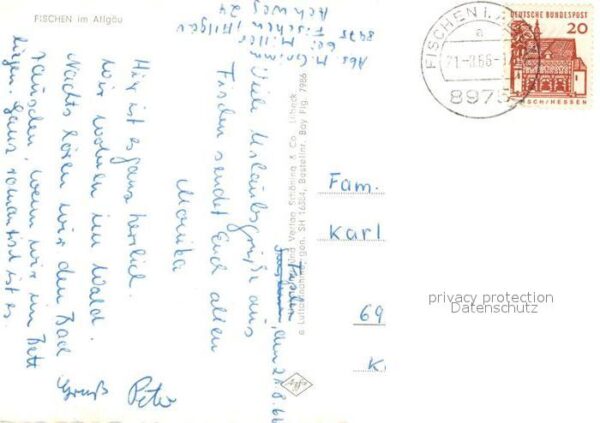 FISCHEN im Allgäu
Abs. M.
bei Miller
8975 Fischen / Allgäu
Achweg 24
Fischen, den 21.8.66
Viele Urlaubsgrüße aus
Fischen sendet Euch allen
Monika
Hier ist es ganz herrlich.
Wir wohnen im Wald.
Nachts hören wir den Bach
rauschen, wenn wir im Bett
liegen. Ganz romantisch ist es.
Gruß Peter
Luftaufnahmen und Verlag Schöning & Co., Lübeck
gen. SH 16384, Bestellnr. Bay Fig. 7986
Agfa
FISCHEN i. ALLGÄU
a
21-8.66-1
8975
DEUTSCHE BUNDESPOST
20
LORSCH/HESSEN
Fam.
Karl
69
K
privacy protection
Datenschutz